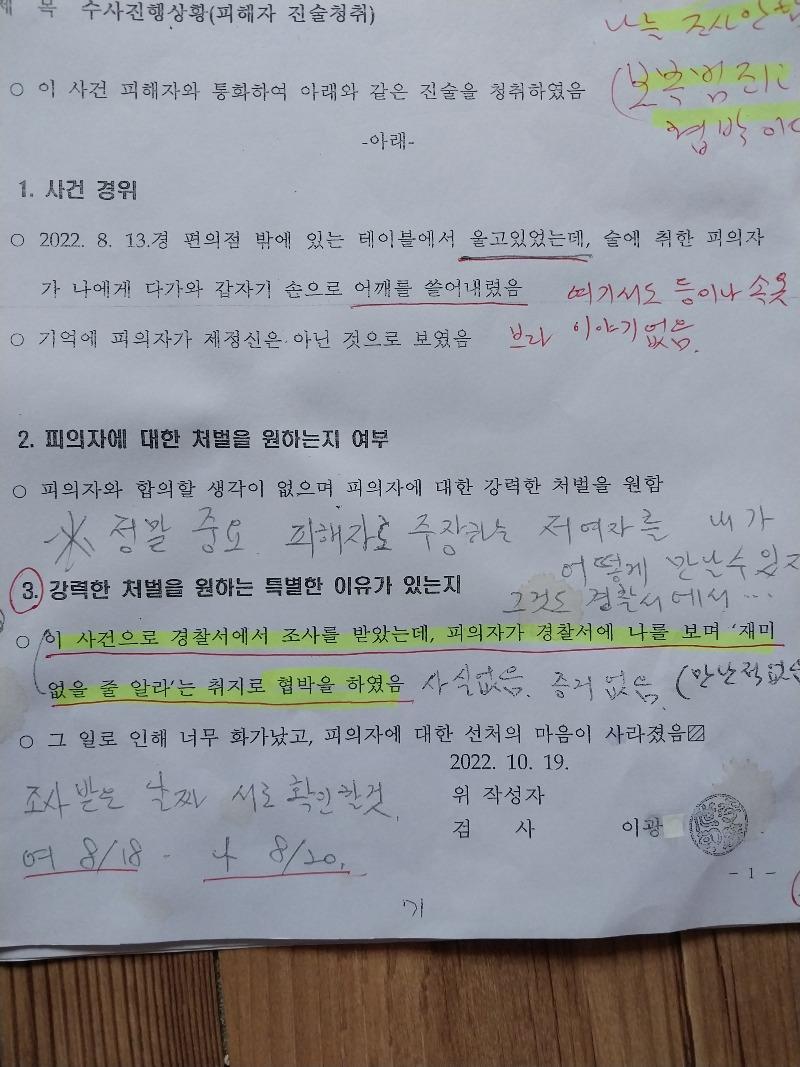 제 목 수사진행상황(피해자 진술청취)
나는 조사안
○ 이 사건 피해자와 통화하여 아래와 같은 진술을 청취하였음
(보복범죄
협박이
-아래-
1. 사건 경위
○ 2022. 8. 13.경 편의점 밖에 있는 테이블에서 울고있었는데, 술에 취한 피의자
가 나에게 다가와 갑자기 손으로 어깨를 쓸어내렸음
여기서도 등이나 속옷
○ 기억에 피의자가 제정신은 아닌 것으로 보였음
브라 이야기 없음.
2. 피의자에 대한 처벌을 원하는지 여부
○ 피의자와 합의할 생각이 없으며 피의자에 대한 강력한 처벌을 원함
※ 정말 중요 피해자로 주장하는 저여자를 내가
어떻게 만날수있
3. 강력한 처벌을 원하는 특별한 이유가 있는지
그것도 경찰서에서...
○ 이 사건으로 경찰서에서 조사를 받았는데, 피의자가 경찰서에 나를 보며 '재미
없을 줄 알라'는 취지로 협박을 하였음
사실없음. 증거 없음. (만난적없음
○ 그 일로 인해 너무 화가났고, 피의자에 대한 선처의 마음이 사라졌음
2022. 10. 19.
조사 받는 날짜 서로 확인할것.
위 작성자
검 사 이광
여 8/18 - 나 8/20.
- 1 -